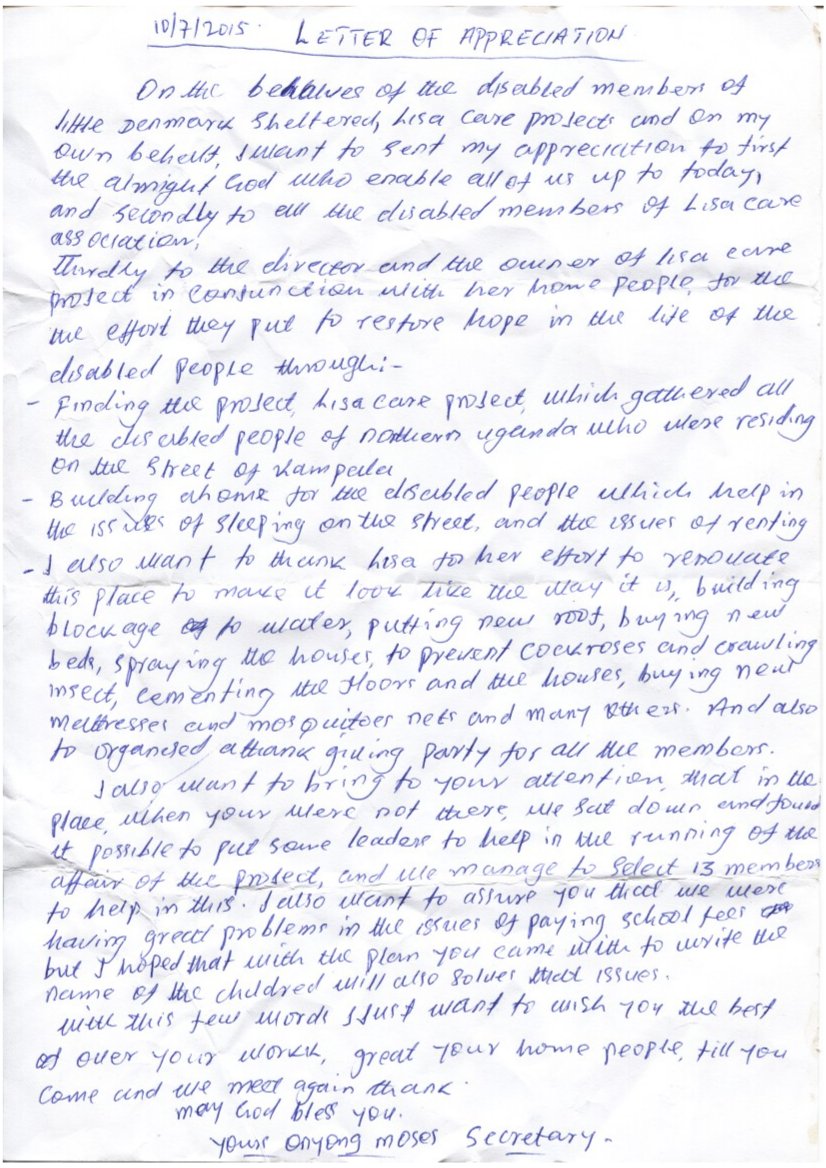 10/7/2015. LETTER OF APPRECIATION
On the behalves of the disabled members of
little Denmark Sheltered, Lisa care projects and on my
own behelt, I want to sent my appreciation to first
the almight God who enable all of us up to today,
and secondly to all the disabled members of Lisa care
association,
Thirdly to the director and the owner of lisa care
project in conjunction with her home people, for the
the effort they put to restore hope in the life of the
disabled people through:-
- Finding the project, Lisa care project, which gathered all
the disabled people of northern uganda who were residing
on the street of Kampala
- Building ahome for the disabled people which help in
the issues of sleeping on the street, and the issues of renting
- I also want to thank Lisa for her effort to renovate
this place to make it look like the way it is, building
blockage to water, putting new roof, buying new
beds, spraying the houses, to prevent cockroses and crawling
insect, cementing the floors and the houses, buying new
mettresses and mosquitoes nets and many others. And also
to organised athank giving party for all the members.
I also want to bring to your attention, that in the
place, when your were not there, we sat down and found
it possible to put some leaders to help in the running of the
affair of the project, and we manage to select 13 members
to help in this. I also want to assure you that we were
having great problems in the issues of paying school fees
but I hoped that with the plan you came with to write the
name of the childred will also solves that issues.
with this few words I just want to wish you the best
of over your workk, great your home people, till you
come and we meet again thank.
may God bless you.
yours Onyong moses Secretary.